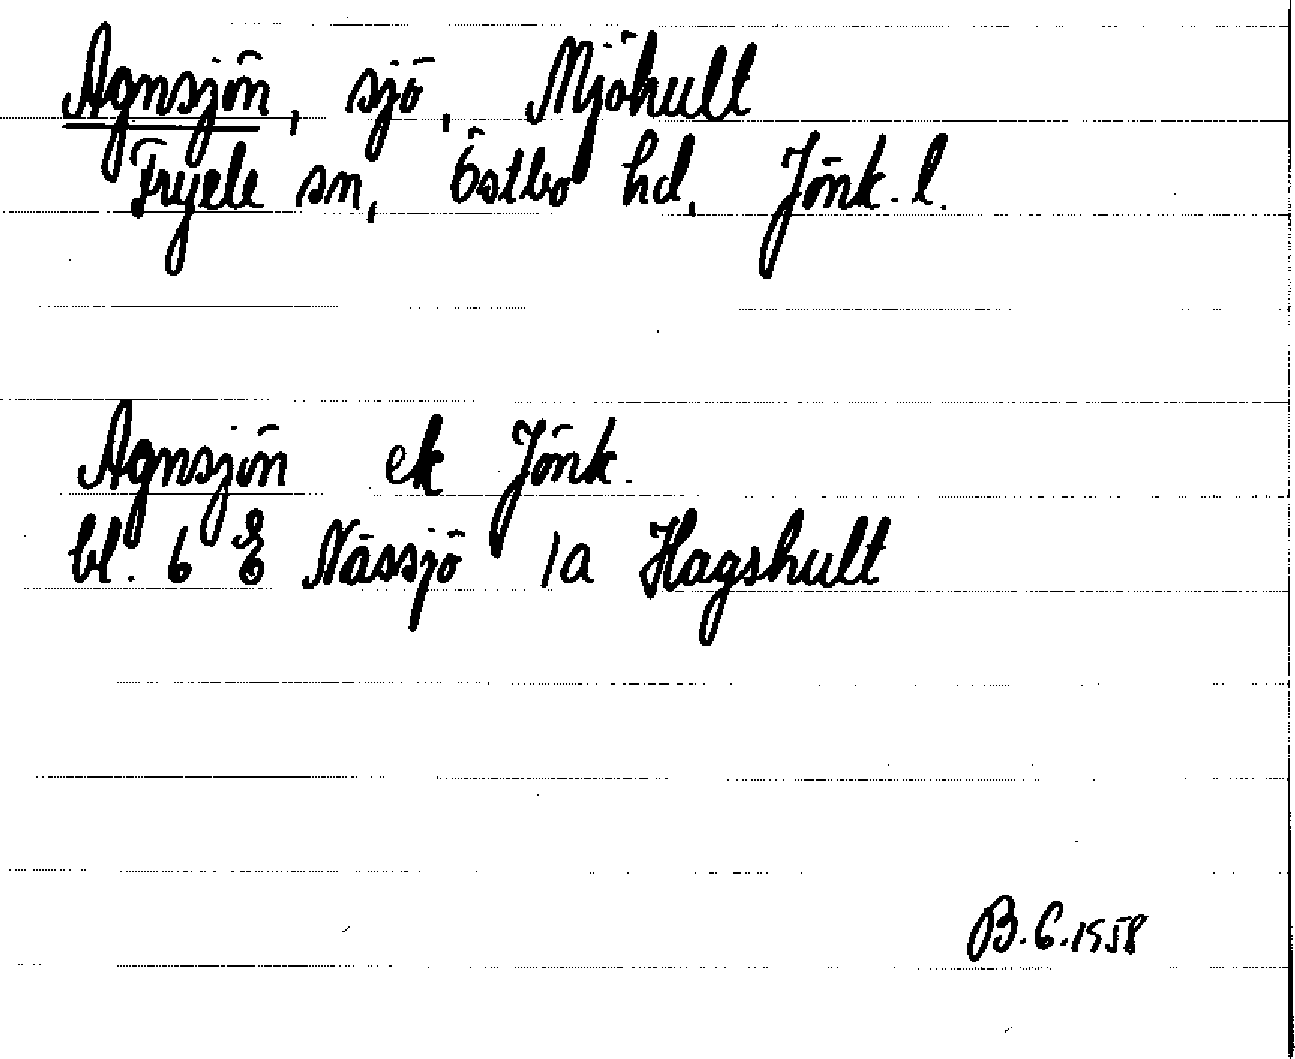 Agnsjön, sjö, Mjöhult
Fryele sn, Östbo hd, Jönk. l.
Agnsjön ek Jönk.
bl. 6 E Nässjö 1a Hagshult
B.G.1958